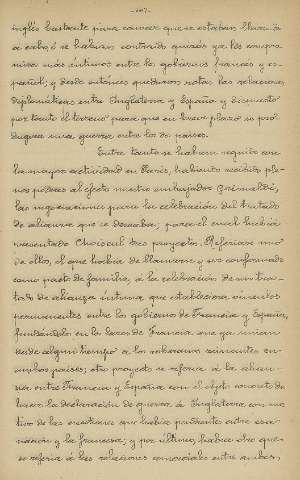 -107-
inglés bastante para conocer que se estaban llevando
a cabo ó se habían contraido quizás ya los compro-
misos más íntimos entre los gobiernos francés y es-
pañol; y desde entónces quedaron rotas las relaciones
diplomáticas entre Inglaterra y España y dispuesto
por tanto el terreno para que en breve plazo se pro-
dugera una guerra entre los dos países.
Entre tanto se habían seguido con
la mayor actividad en París, habiendo recibido ple-
nos poderes al efecto nuestro embajador Grimaldi,
las negociaciones para la celebración del tratado
de alianza que se deseaba, para el cual había
presentado Choiseul tres proyectos. Referíase uno
de ellos, el que había de llamarse y ser conformado
como pacto de familia, á la celebración de un tra-
tado de alianza íntima que estableciera vínculos
permanentes entre los gobiernos de Francia y España,
fundándolo en los lazos de Francia que ya unían
desde algun tiempo á los soberanos reinantes en
ambos países; otro proyecto se refería á la alian-
za entre Francia y España con el objeto concreto de
hacer la declaración de guerra á Inglaterra con mo-
tivo de las cuestiones que había pendientes entre esta
nación y la francesa; y por último, había otro que
se refería á las relaciones comerciales entre ambas